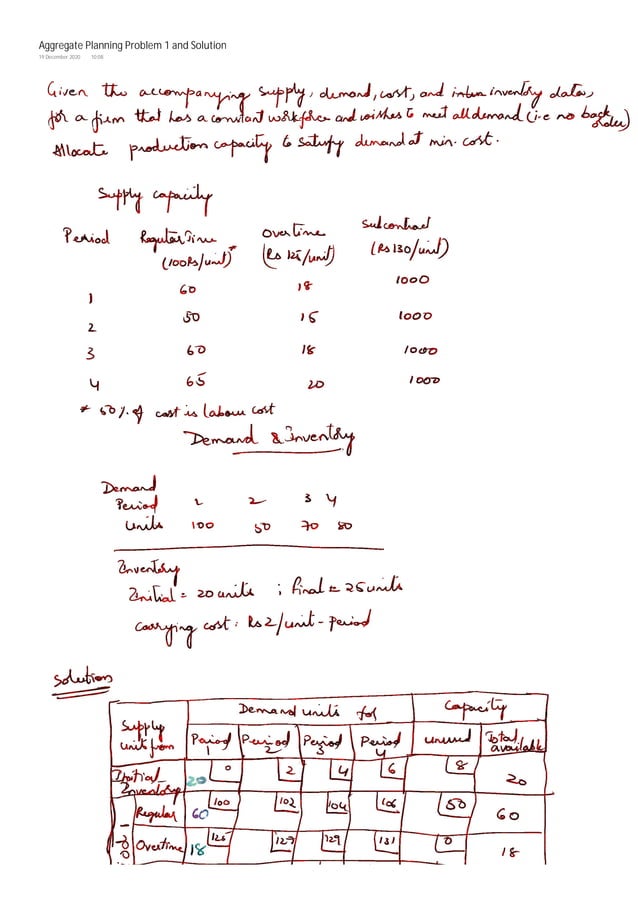 Aggregate Planning Problem 1 and Solution
19 December 2020 10:08
Given the accompanying supply, demand, cost, and inventory data,
for a firm that has a constant workforce and wishes to meet all demand (i.e no back order)
Allocate production capacity to satisfy demand at min. cost.
Supply capacity
Period Regular Time (100Rs/unit)* Overtime (Rs 125/unit) Subcontract (Rs 130/unit)
1 60 18 1000
2 50 15 1000
3 60 18 1000
4 65 20 1000
* 50%.of cost is labour cost
Demand & Inventory
Demand
Period 2 3 4
Units 100 50 70 80
Inventory
Initial = 20 units ; final = 25 units
Carrying cost : Rs2/unit-period
Solution
Supply unit from Demand units for Capacity
Period 1 Period 2 Period 3 Period 4 unused Total available
Initial Inventory 20 0 2 4 6 8 20
Regular 60 100 102 104 106 50 60
Overtime 18 125 127 129 131 0 18